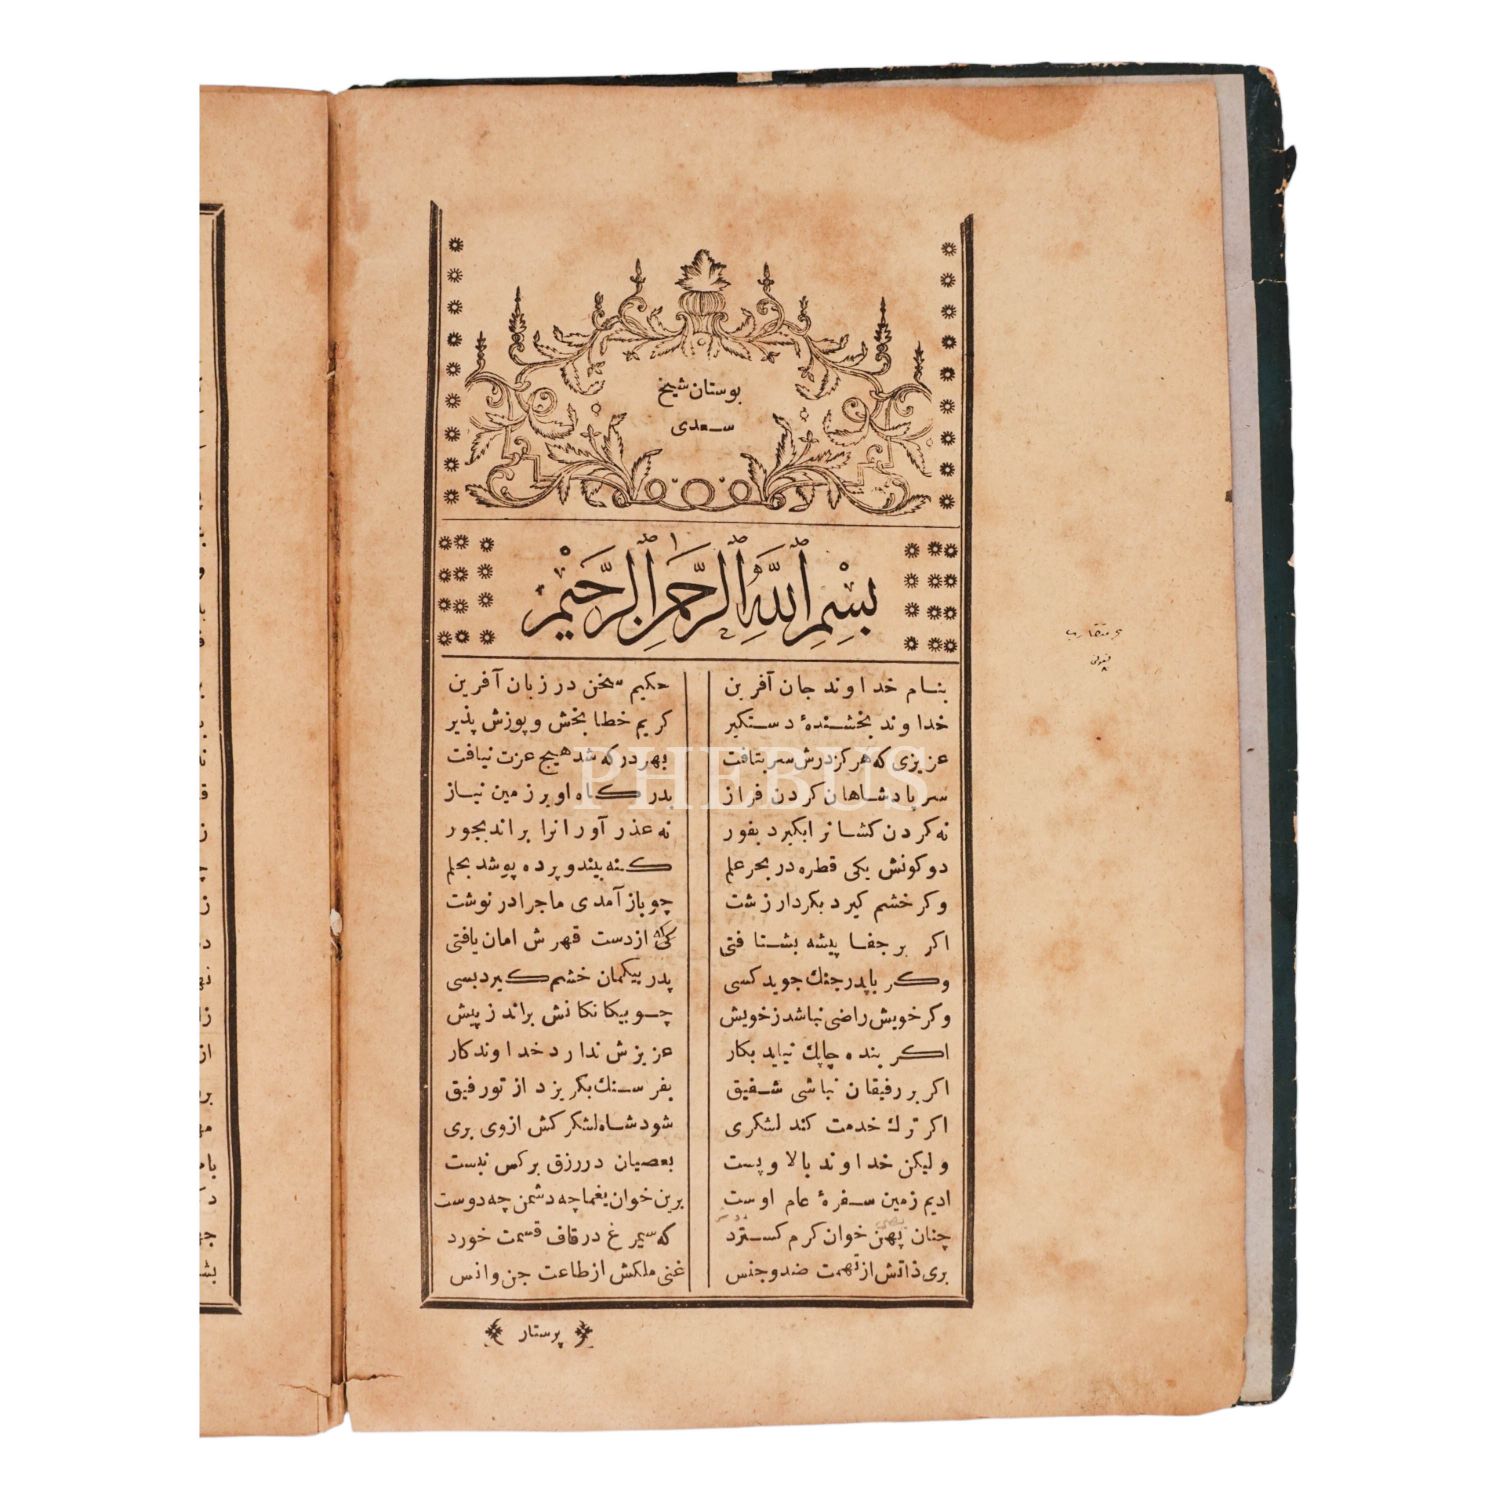 بوستان شیخ
سعدی
بِسْمِ اللَّهِ الرَّحْمٰنِ الرَّحِيْمِ
بنام خداوند جان آفرین حکیم سخن در زبان آفرین
خداوند بخشندهٔ دستکیر کریم خطا بخش و پوزش پذیر
عزیزی که هر کز درش سر بتافت بهر در که شد هیچ عزت نیافت
سر پادشاهان کردن فراز بدرکاه او بر زمین نیاز
نه کردن کشانرا بکیرد بفور نه عذر آورانرا براند بجور
دو کونش یکی قطره در بحر علم کنه بیند و پرده پوشد بحلم
وکر خشم کیرد بکردار زشت چو باز آمدی ماجرا در نوشت
اکر بر جفا پیشه بشتافتی کی از دست قهرش امان یافتی
وکر با پدر جنك جوید کسی پدر بیکمان خشم کیرد بسی
وکر خویش راضی نباشد ز خویش چو بیکانکانش براند ز پیش
اکر بنده چابك نیاید بکار عزیزش ندارد خداوندکار
اکر بر رفیقان نباشی شفیق بفرسنك بکریزد از تو رفیق
اکر ترك خدمت کند لشکری شود شاه لشکر کش از وی بری
ولیکن خداوند بالا و پست بعصیان در رزق بر کس نبست
ادیم زمین سفرهٔ عام اوست برین خوان یغما چه دشمن چه دوست
چنان پهن خوان کرم کسترد که سیمرغ در قاف قسمت خورد
بری ذاتش از تهمت ضد و جنس غنی ملکش از طاعت جن و انس
پرستار
بحر متقارب
فعولن
۸
PHEBUS